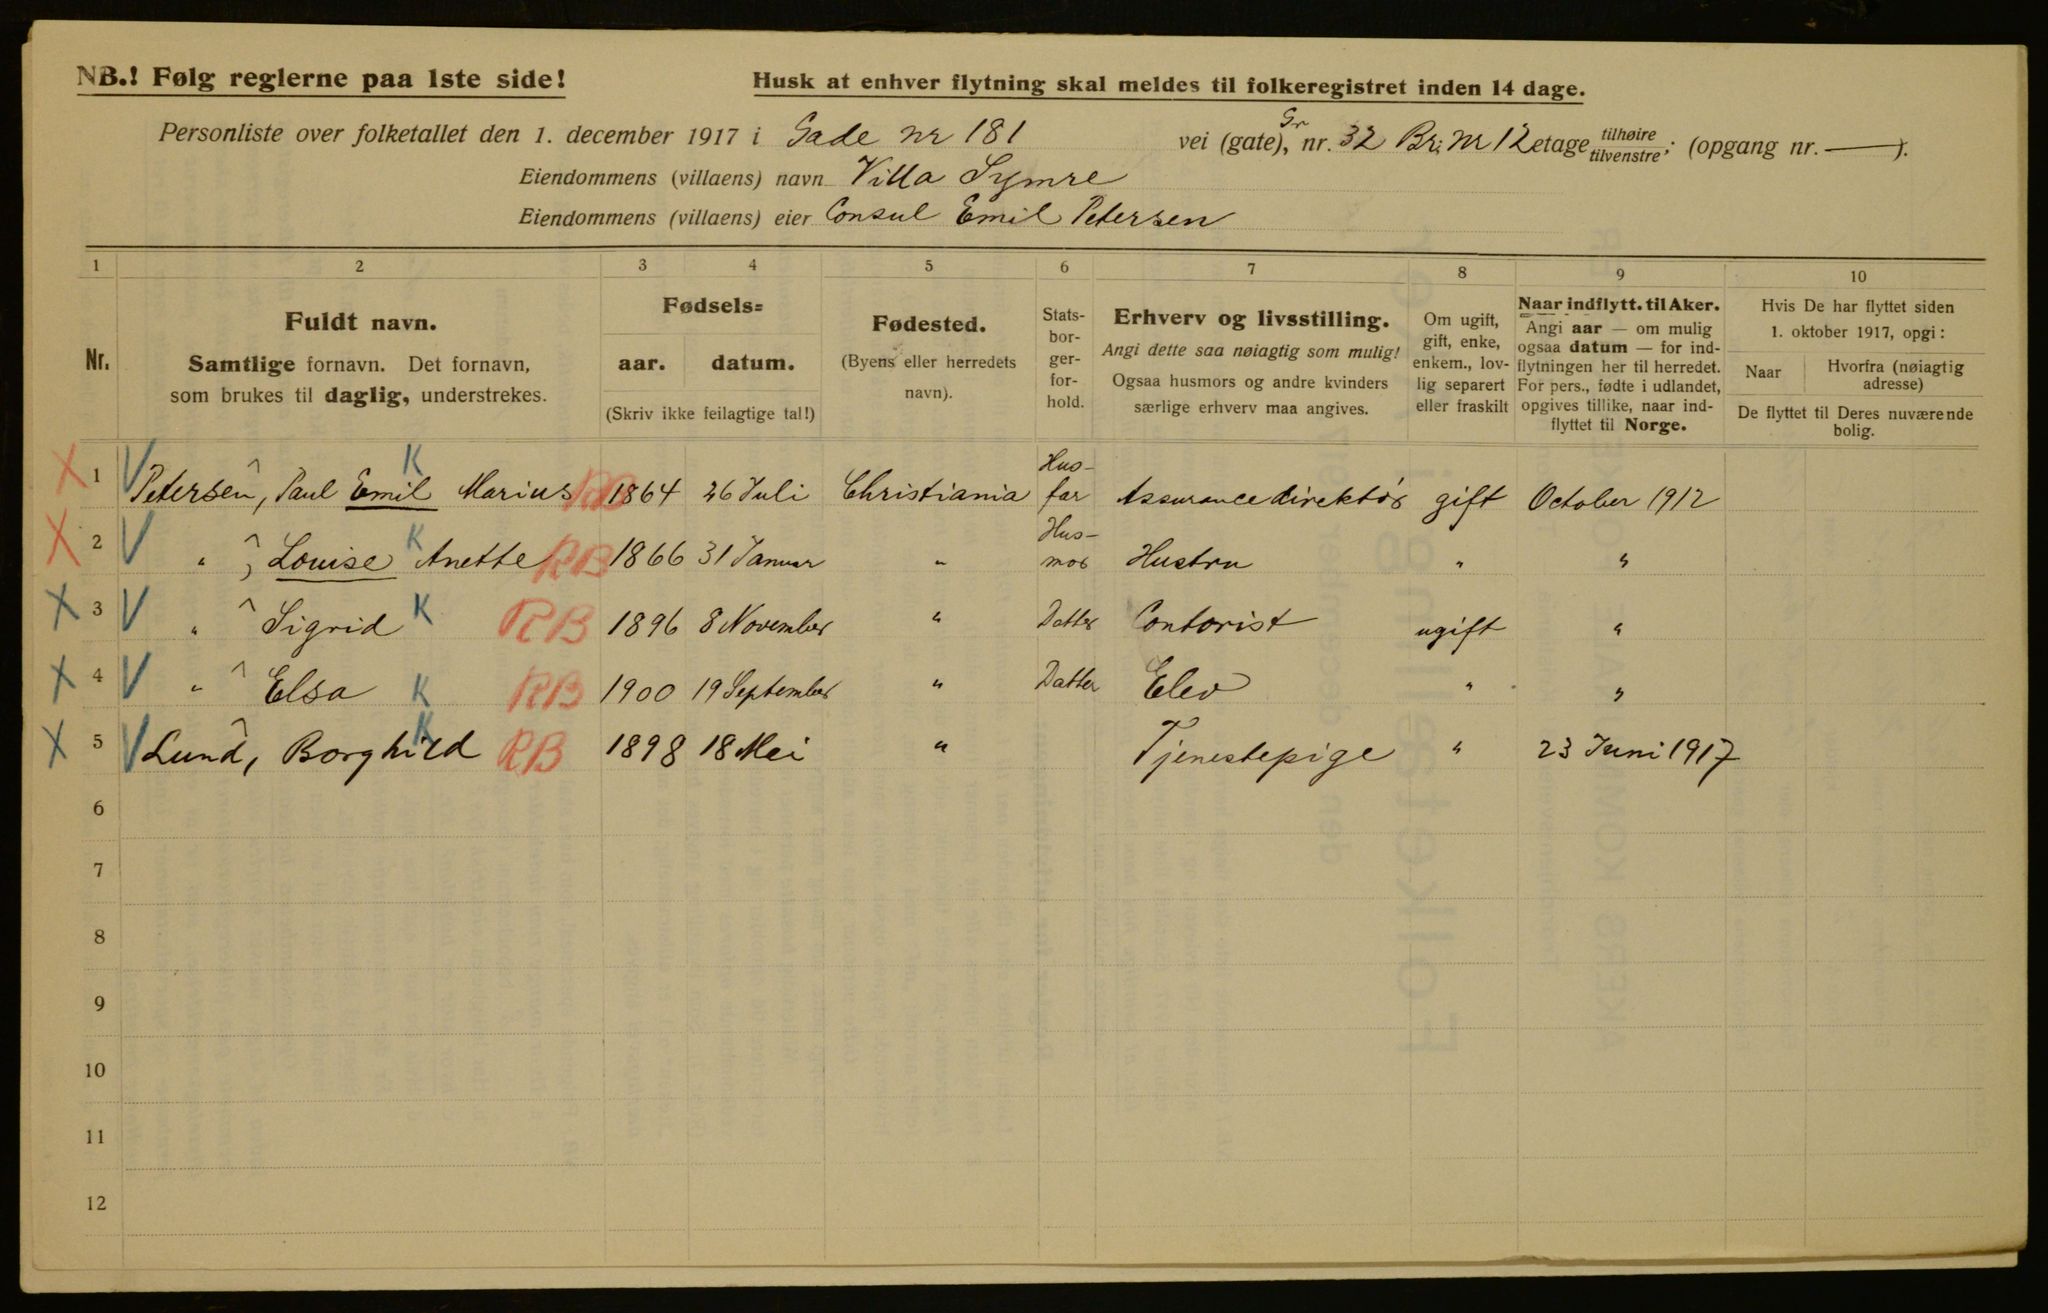 NB.! Følg reglerne paa 1ste side!
Husk at enhver flytning skal meldes til folkeregistret inden 14 dage.
Personliste over folketallet den 1. december 1917 i Gade nr 181 vei (gate), Gr nr. 32 Br: Nr 12 etage tilhøire tilvenstre; (opgang nr. —).
Eiendommens (villaens) navn Villa Symre
Eiendommens (villaens) eier Consul Emil Petersen
1 2 3 4 5 6 7 8 9 10
Nr.
Fuldt navn.
Samtlige fornavn. Det fornavn,
som brukes til daglig, understrekes.
Fødsels=
aar. datum.
(Skriv ikke feilagtige tal!)
Fødested.
(Byens eller herredets
navn).
Stats-
bor-
ger-
for-
hold.
Erhverv og livsstilling.
Angi dette saa nøiagtig som mulig!
Ogsaa husmors og andre kvinders
særlige erhverv maa angives.
Om ugift,
gift, enke,
enkem., lov-
lig separert
eller fraskilt
Naar indflytt. til Aker.
Angi aar — om mulig
ogsaa datum — for ind-
flytningen her til herredet.
For pers., fødte i udlandet,
opgives tillike, naar ind-
flyttet til Norge.
Hvis De har flyttet siden
1. oktober 1917, opgi:
Naar
Hvorfra (nøiagtig
adresse)
De flyttet til Deres nuværende
bolig.
X 1 V Petersen, Paul Emil Marius K RB 1864 26 Juli Christiania Hus-far Assurancedirektør gift October 1912
X 2 V " , Louise Anette K RB 1866 31 Januar " Hus-mor Hustru " "
X 3 V " Sigrid K RB 1896 8 November " Datter Contorist ugift "
X 4 V " Elsa K RB 1900 19 September " Datter Elev " "
X 5 V Lund, Borghild K RB 1898 18 Mei " Tjenestepige " 23 Juni 1917
6
7
8
9
10
11
12